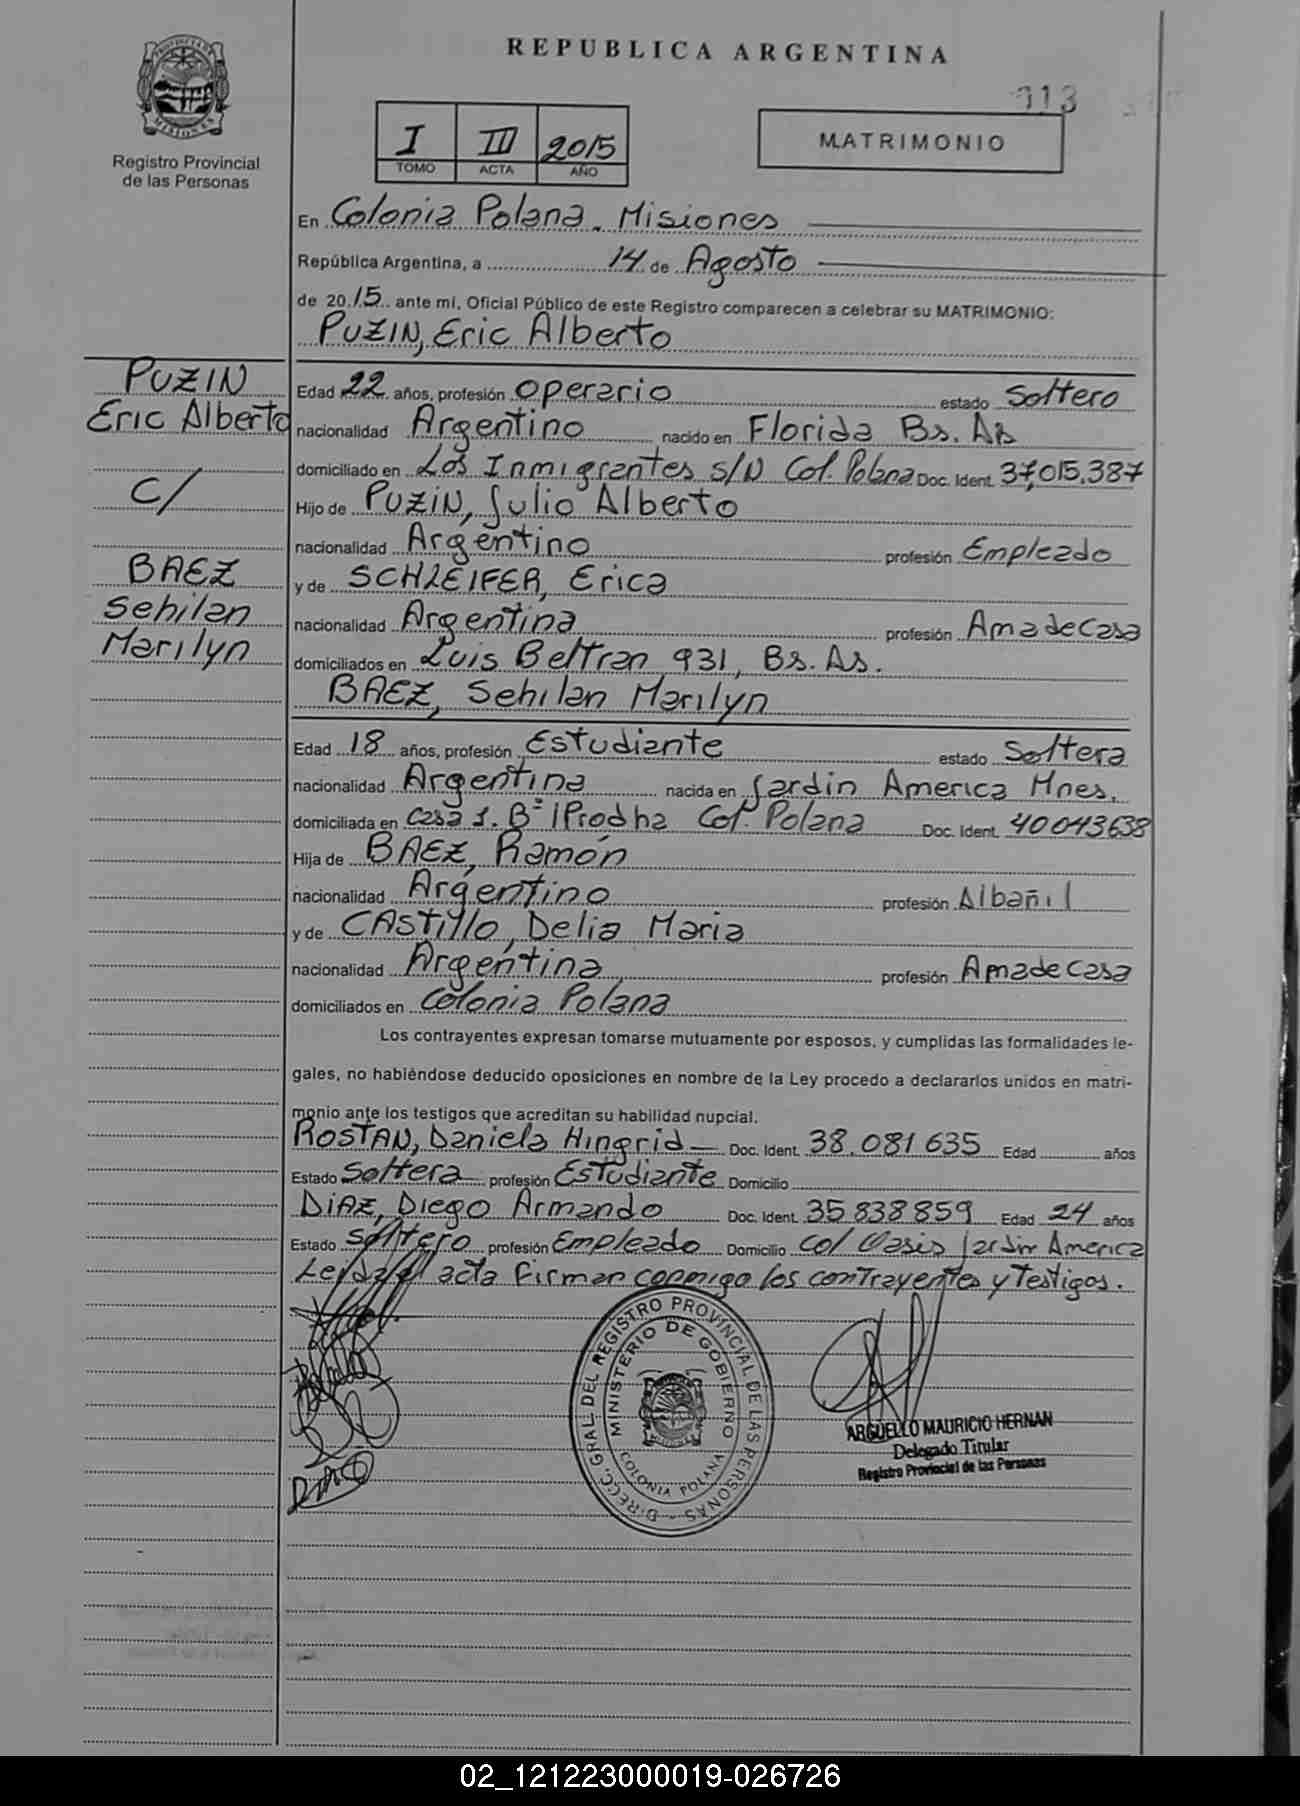 REPUBLICA ARGENTINA
113
PROVINCIA DE MISIONES
Registro Provincial
de las Personas
I III 2015
TOMO ACTA AÑO
MATRIMONIO
En Colonia Polana. Misiones
República Argentina, a 14 de Agosto
de 2015 ante mí, Oficial Público de este Registro comparecen a celebrar su MATRIMONIO:
PUZIN, Eric Alberto
PUZIN
Eric Alberto
C/
BAEZ
Sehilan
Marilyn
Edad 22 años, profesión Operario estado Soltero
nacionalidad Argentino nacido en Florida Bs. As
domiciliado en Los Inmigrantes s/N Col. Polana Doc. Ident. 37,015,387
Hijo de PUZIN, Julio Alberto
nacionalidad Argentino profesión Empleado
y de SCHLEIFER, Erica
nacionalidad Argentina profesión Ama de Casa
domiciliados en Luis Beltran 931, Bs. As.
BAEZ, Sehilan Marilyn
Edad 18 años, profesión Estudiante estado Soltera
nacionalidad Argentina nacida en Jardin America Mnes.
domiciliada en Casa 1. B° IProdha Col. Polana Doc. Ident. 40043638
Hija de BAEZ, Ramón
nacionalidad Argentino profesión Albañil
y de CAstillo, Delia Maria
nacionalidad Argentina profesión Ama de Casa
domiciliados en Colonia Polana
Los contrayentes expresan tomarse mutuamente por esposos, y cumplidas las formalidades le-
gales, no habiéndose deducido oposiciones en nombre de la Ley procedo a declararlos unidos en matri-
monio ante los testigos que acreditan su habilidad nupcial.
ROSTAN, Daniela Hingrid Doc. Ident. 38.081635 Edad años
Estado Soltera profesión Estudiante Domicilio
DiAZ, Diego Armando Doc. Ident. 35838859 Edad 24 años
Estado Soltero profesión Empleado Domicilio Col Oasis Jardin America
Leida el acta firman conmigo los contrayentes y testigos.
DIRECC. GRAL. DEL REGISTRO PROVINCIAL DE LAS PERSONAS
MINISTERIO DE GOBIERNO
COLONIA POLANA
ARGUELLO MAURICIO HERNAN
Delegado Titular
Registro Provincial de las Personas
02_121223000019-026726